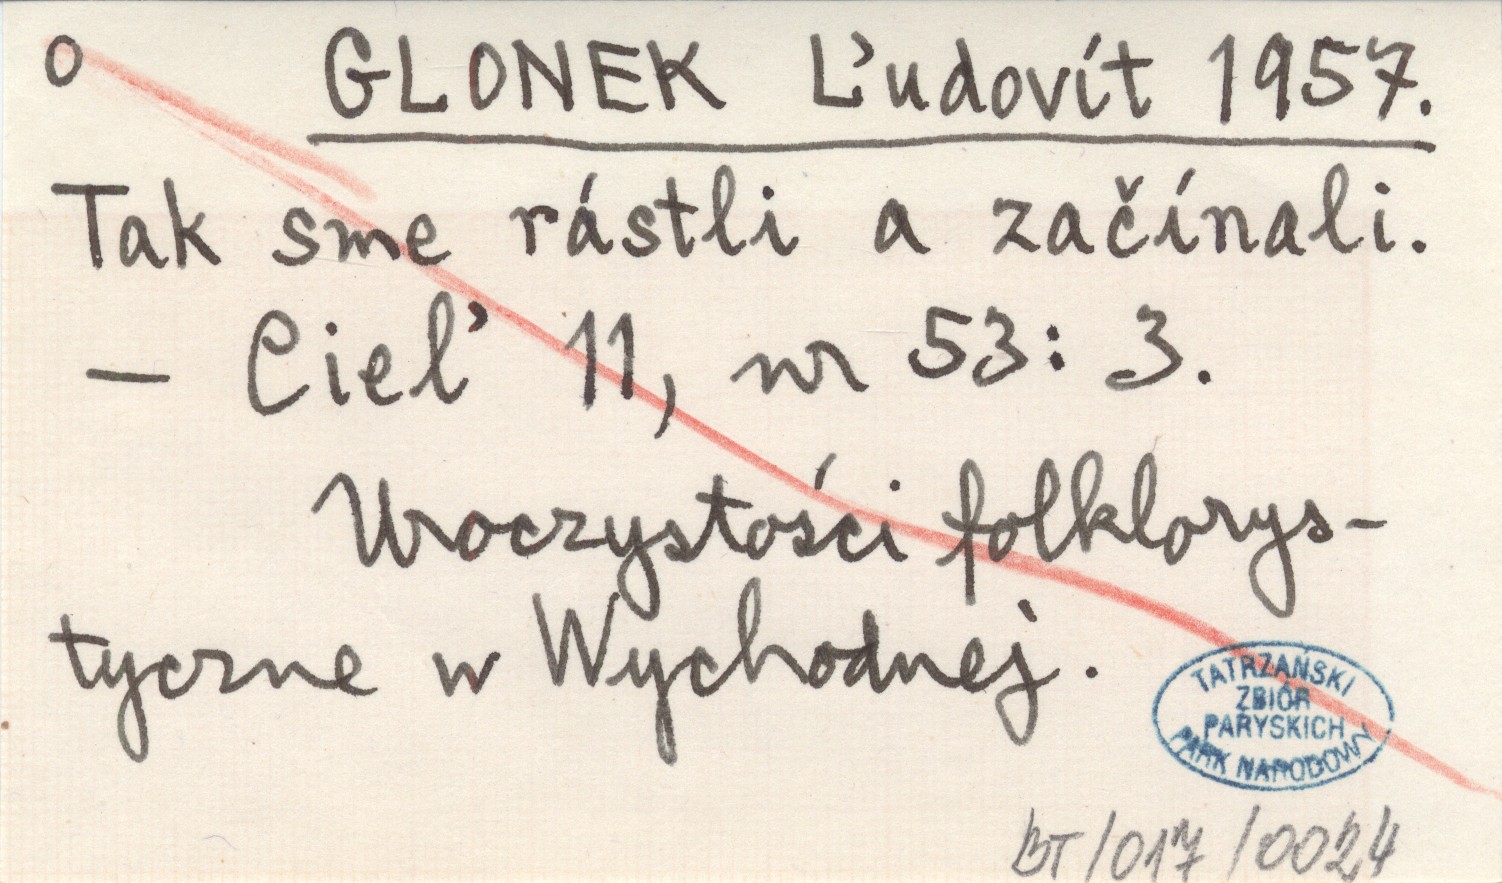 o GLONEK Ľudovít 1957.
Tak sme rástli a začínali.
— Cieľ 11, nr 53: 3.
Uroczystości folklorys-
tyczne w Wychodnej.
TATRZAŃSKI
ZBIÓR
PARYSKICH
PARK NARODOWY
BT/017/0024